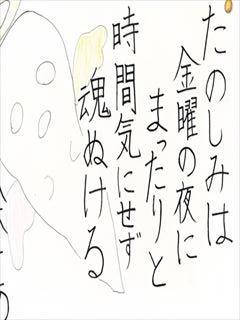 たのしみは
金曜の夜に
まったりと
時間気にせず
魂ぬける